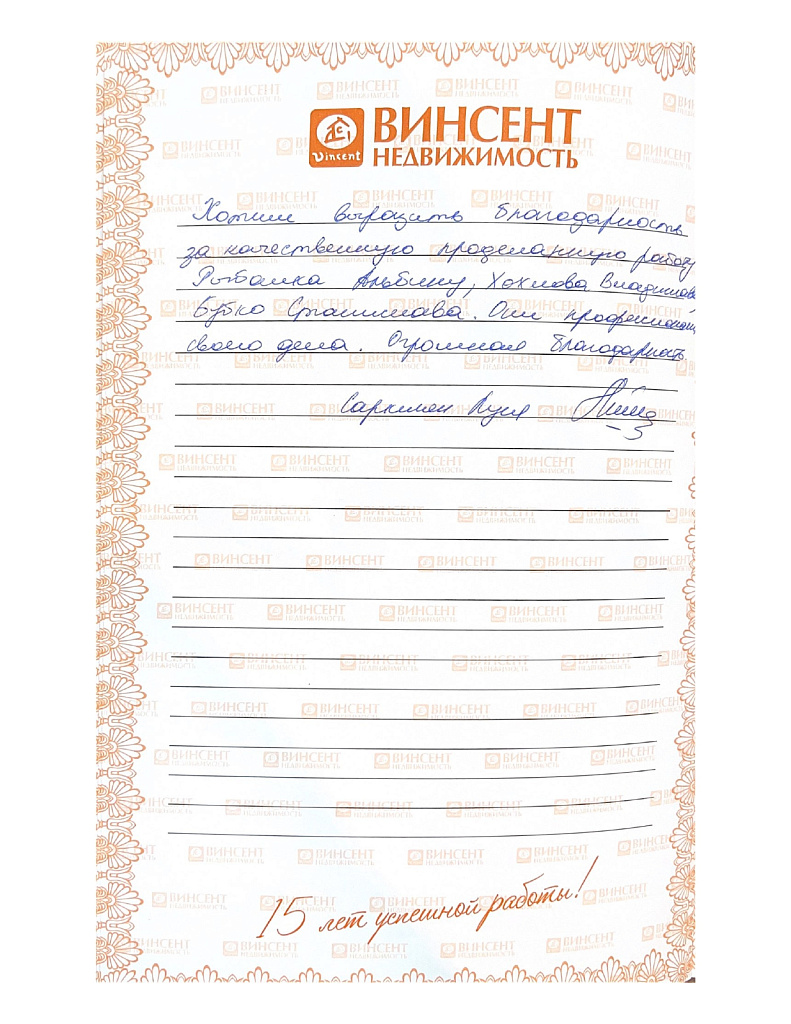 ВИНСЕНТ
НЕДВИЖИМОСТЬ
Vincent
Хотим выразить благодарность
за качественную проделанную работу
Рыбалка Альбину, Хохлова Владислава,
Бубко Станислава. Они профессионалы
своего дела. Огромная благодарность
15 лет успешной работы!